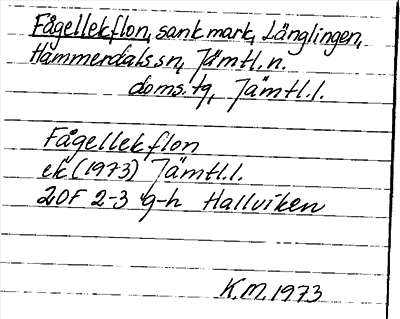 Fågellekflon, sank mark, Länglingen,
Hammerdals sn, Jämtl.n.
doms.tg, Jämtl.l.
Fågellekflon
ek (1973) Jämtl.l.
20F 2-3 g-h Hallviken
K.M. 1973